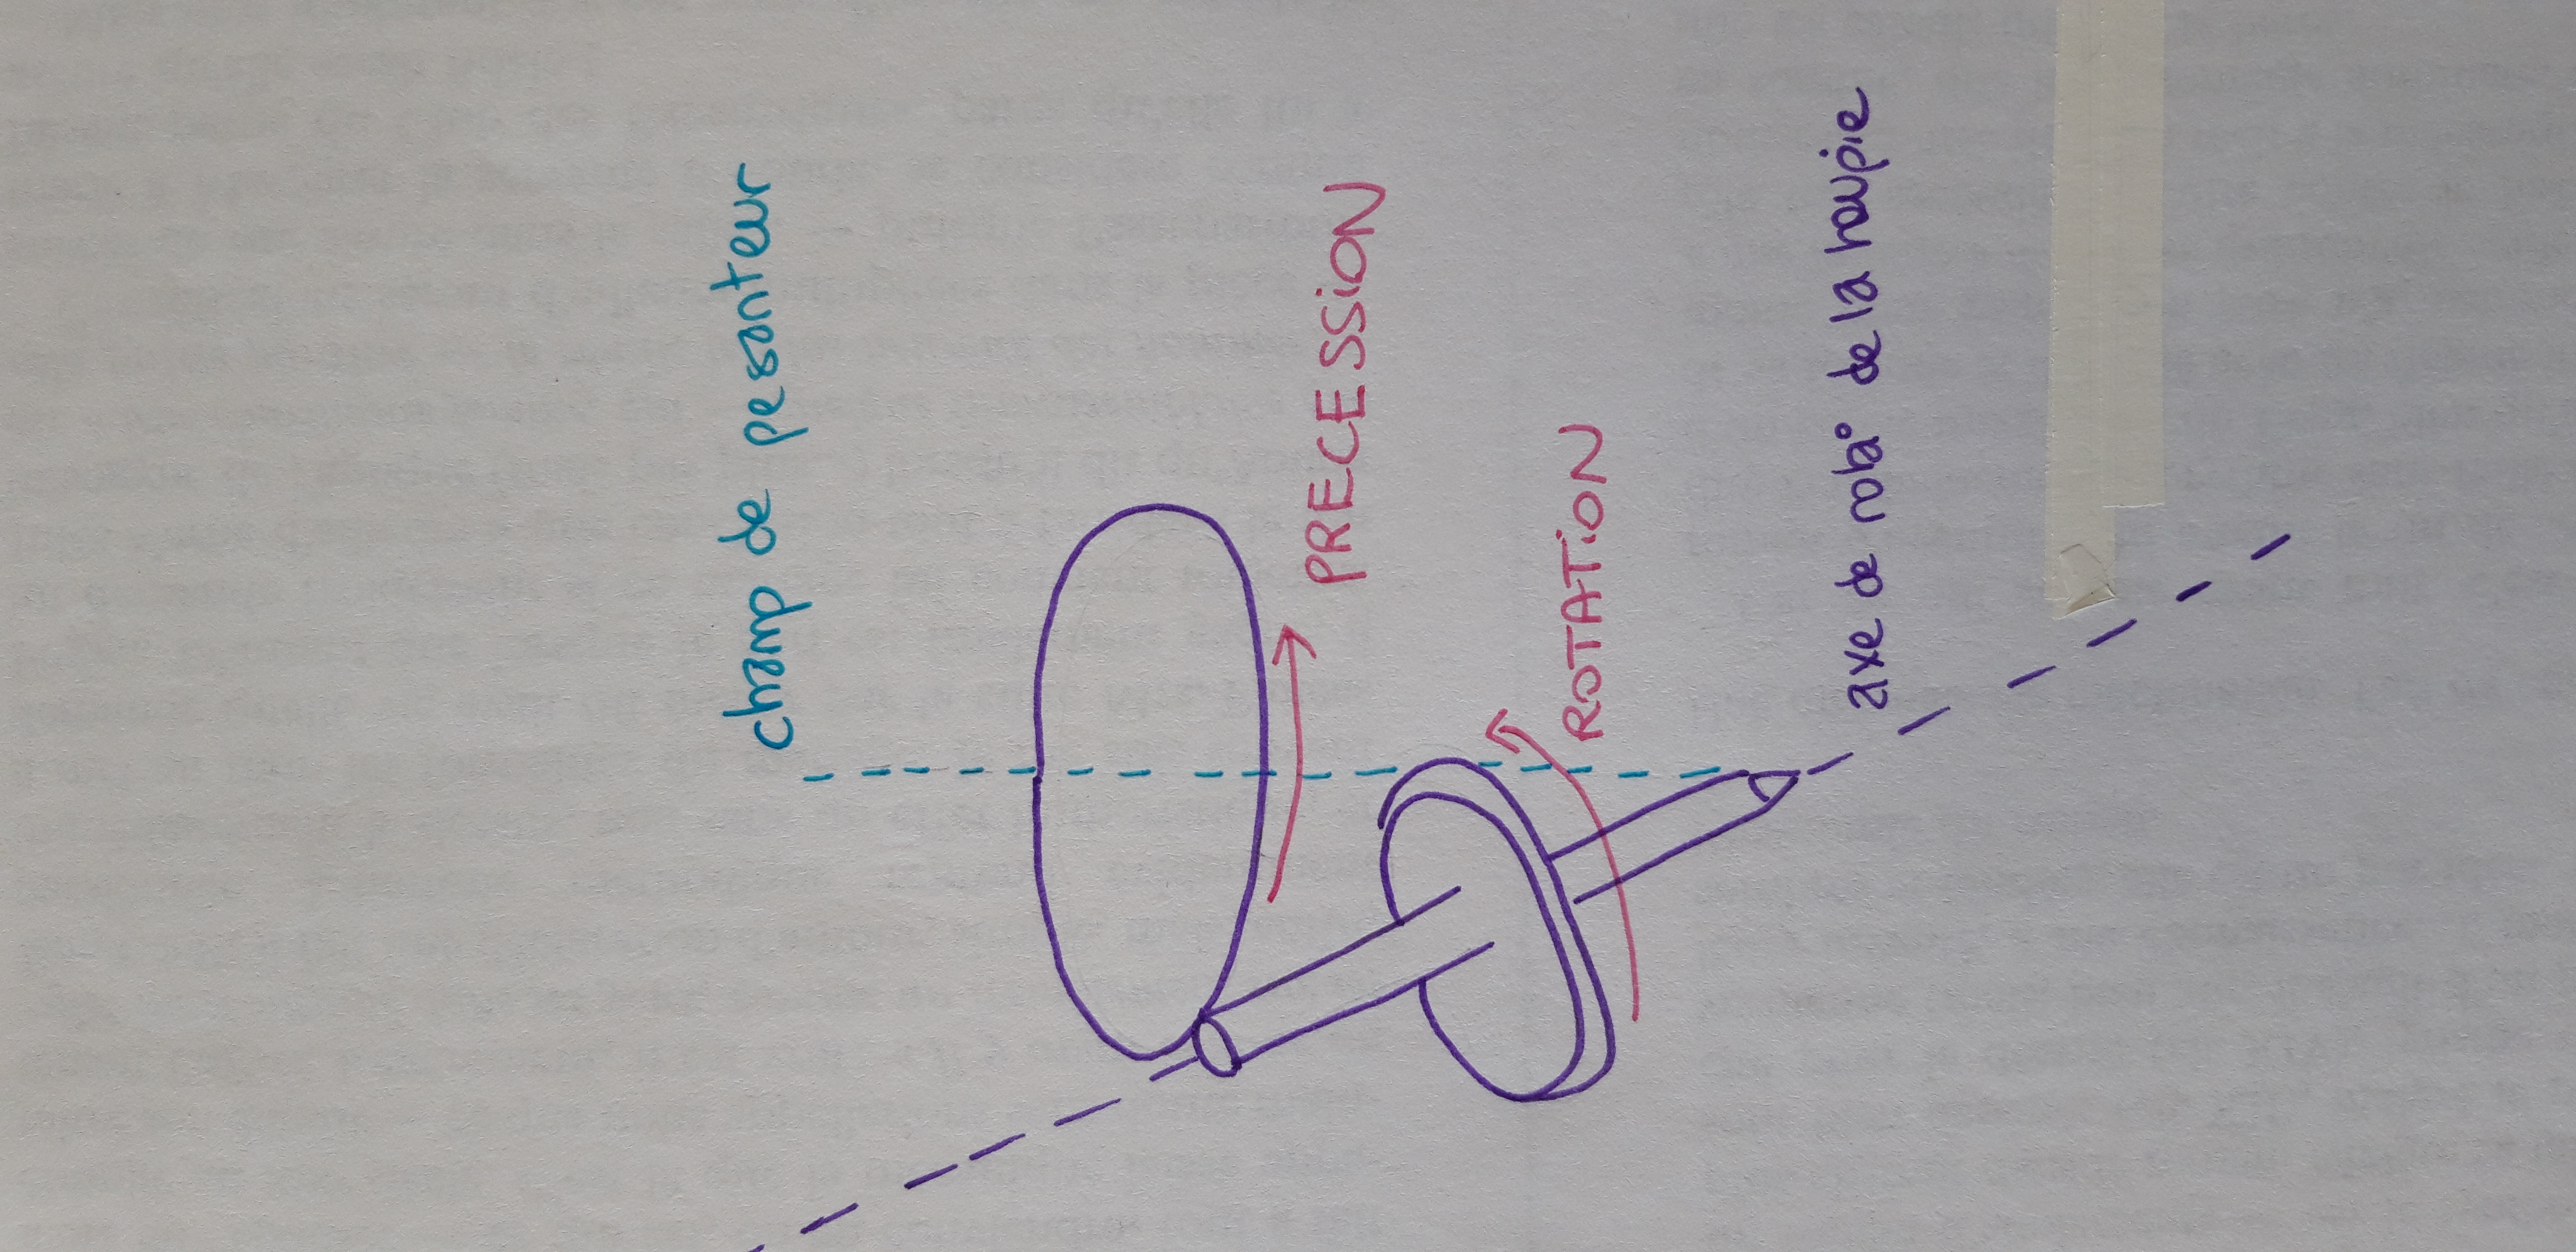 champ de pesanteur
PRECESSiON
ROTATiON
axe de rota° de la toupie